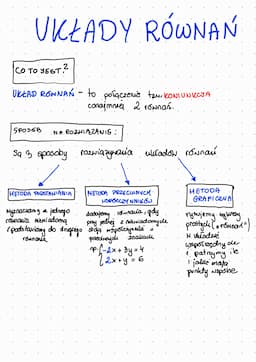 UKŁADY RÓWNAŃ
CO TO JEST?
UKŁAD RÓWNAŃ - to połączenie tzw. KONIUNKCJA
conajmniej 2 równań.
SPOSÓB NA ROZWIĄZANIE:
Są 3 sposoby rozwiązywania układów równań
METODA PODSTAWIANIA
Wyznaczamy z jednego
równania niewiadomą
i podstawiamy do drugiego
równania
METODA PRZECIWNYCH
WSPÓŁCZYNNIKÓW
Dodajemy równania, gdy
przy jednej z niewiadomych
stoją współczynniki o
przeciwnych znakach
np. -2x + 3y = 4
2x + y = 6
METODA
GRAFICZNA
rysujemy wykresy
prostych ("równań")
w układzie
współrzędnych
i patrzymy ile
i jakie mają
punkty wspólne